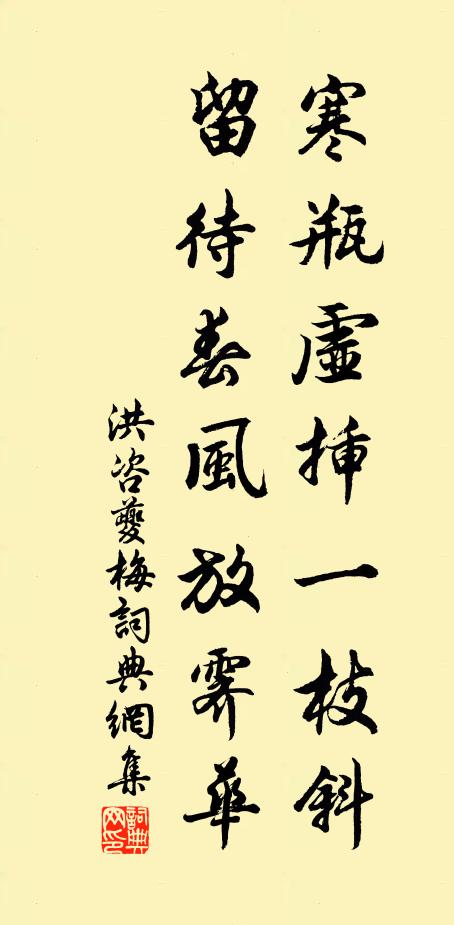 寒瓶虛揷一枝斜
留待春風放霽華
洪咨夔梅詞典網集
詞典網印